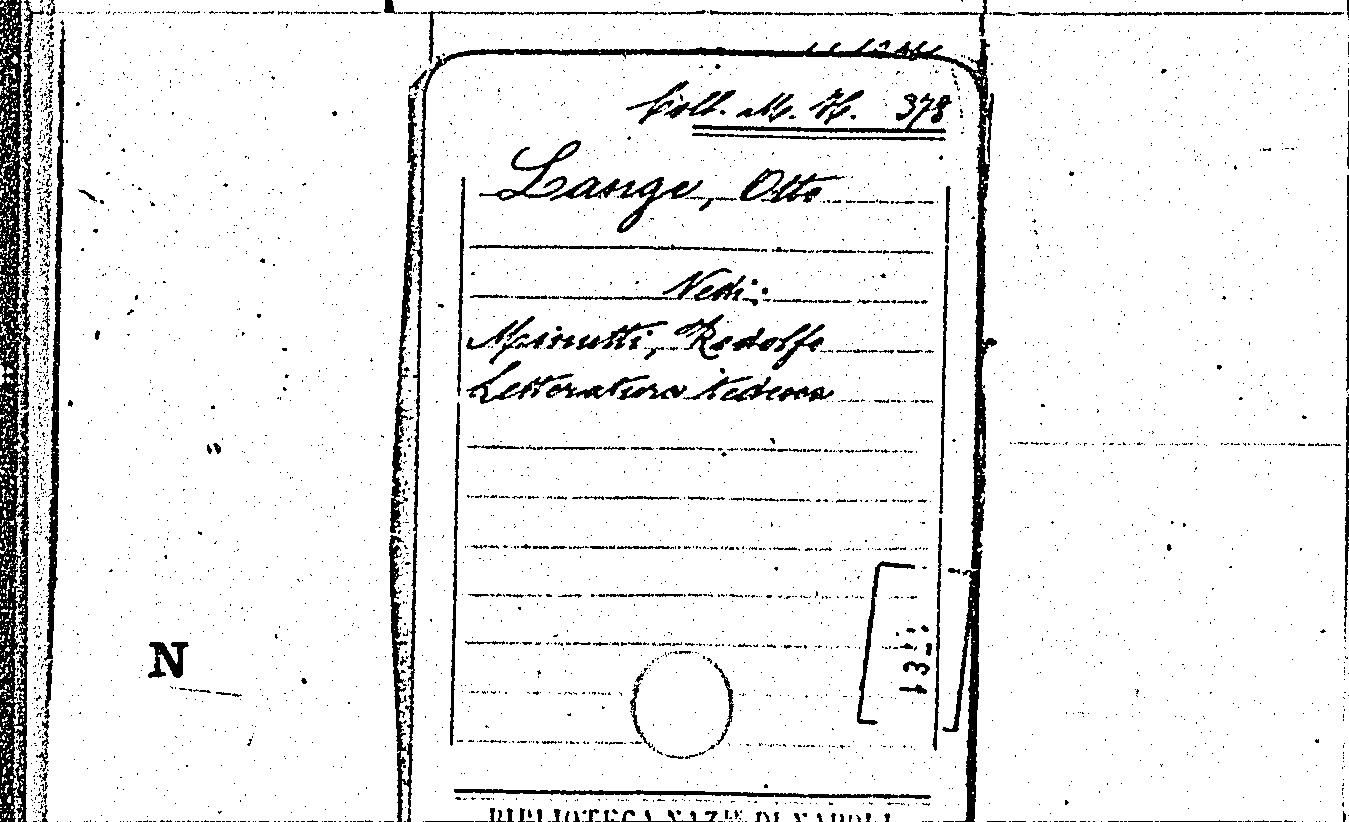 Coll. M. H. 378
Lange, Otto
Vedi:
Minutti, Rodolfo
Letteratura tedesca
N
BIBLIOTECA NAZ.LE DI NAPOLI